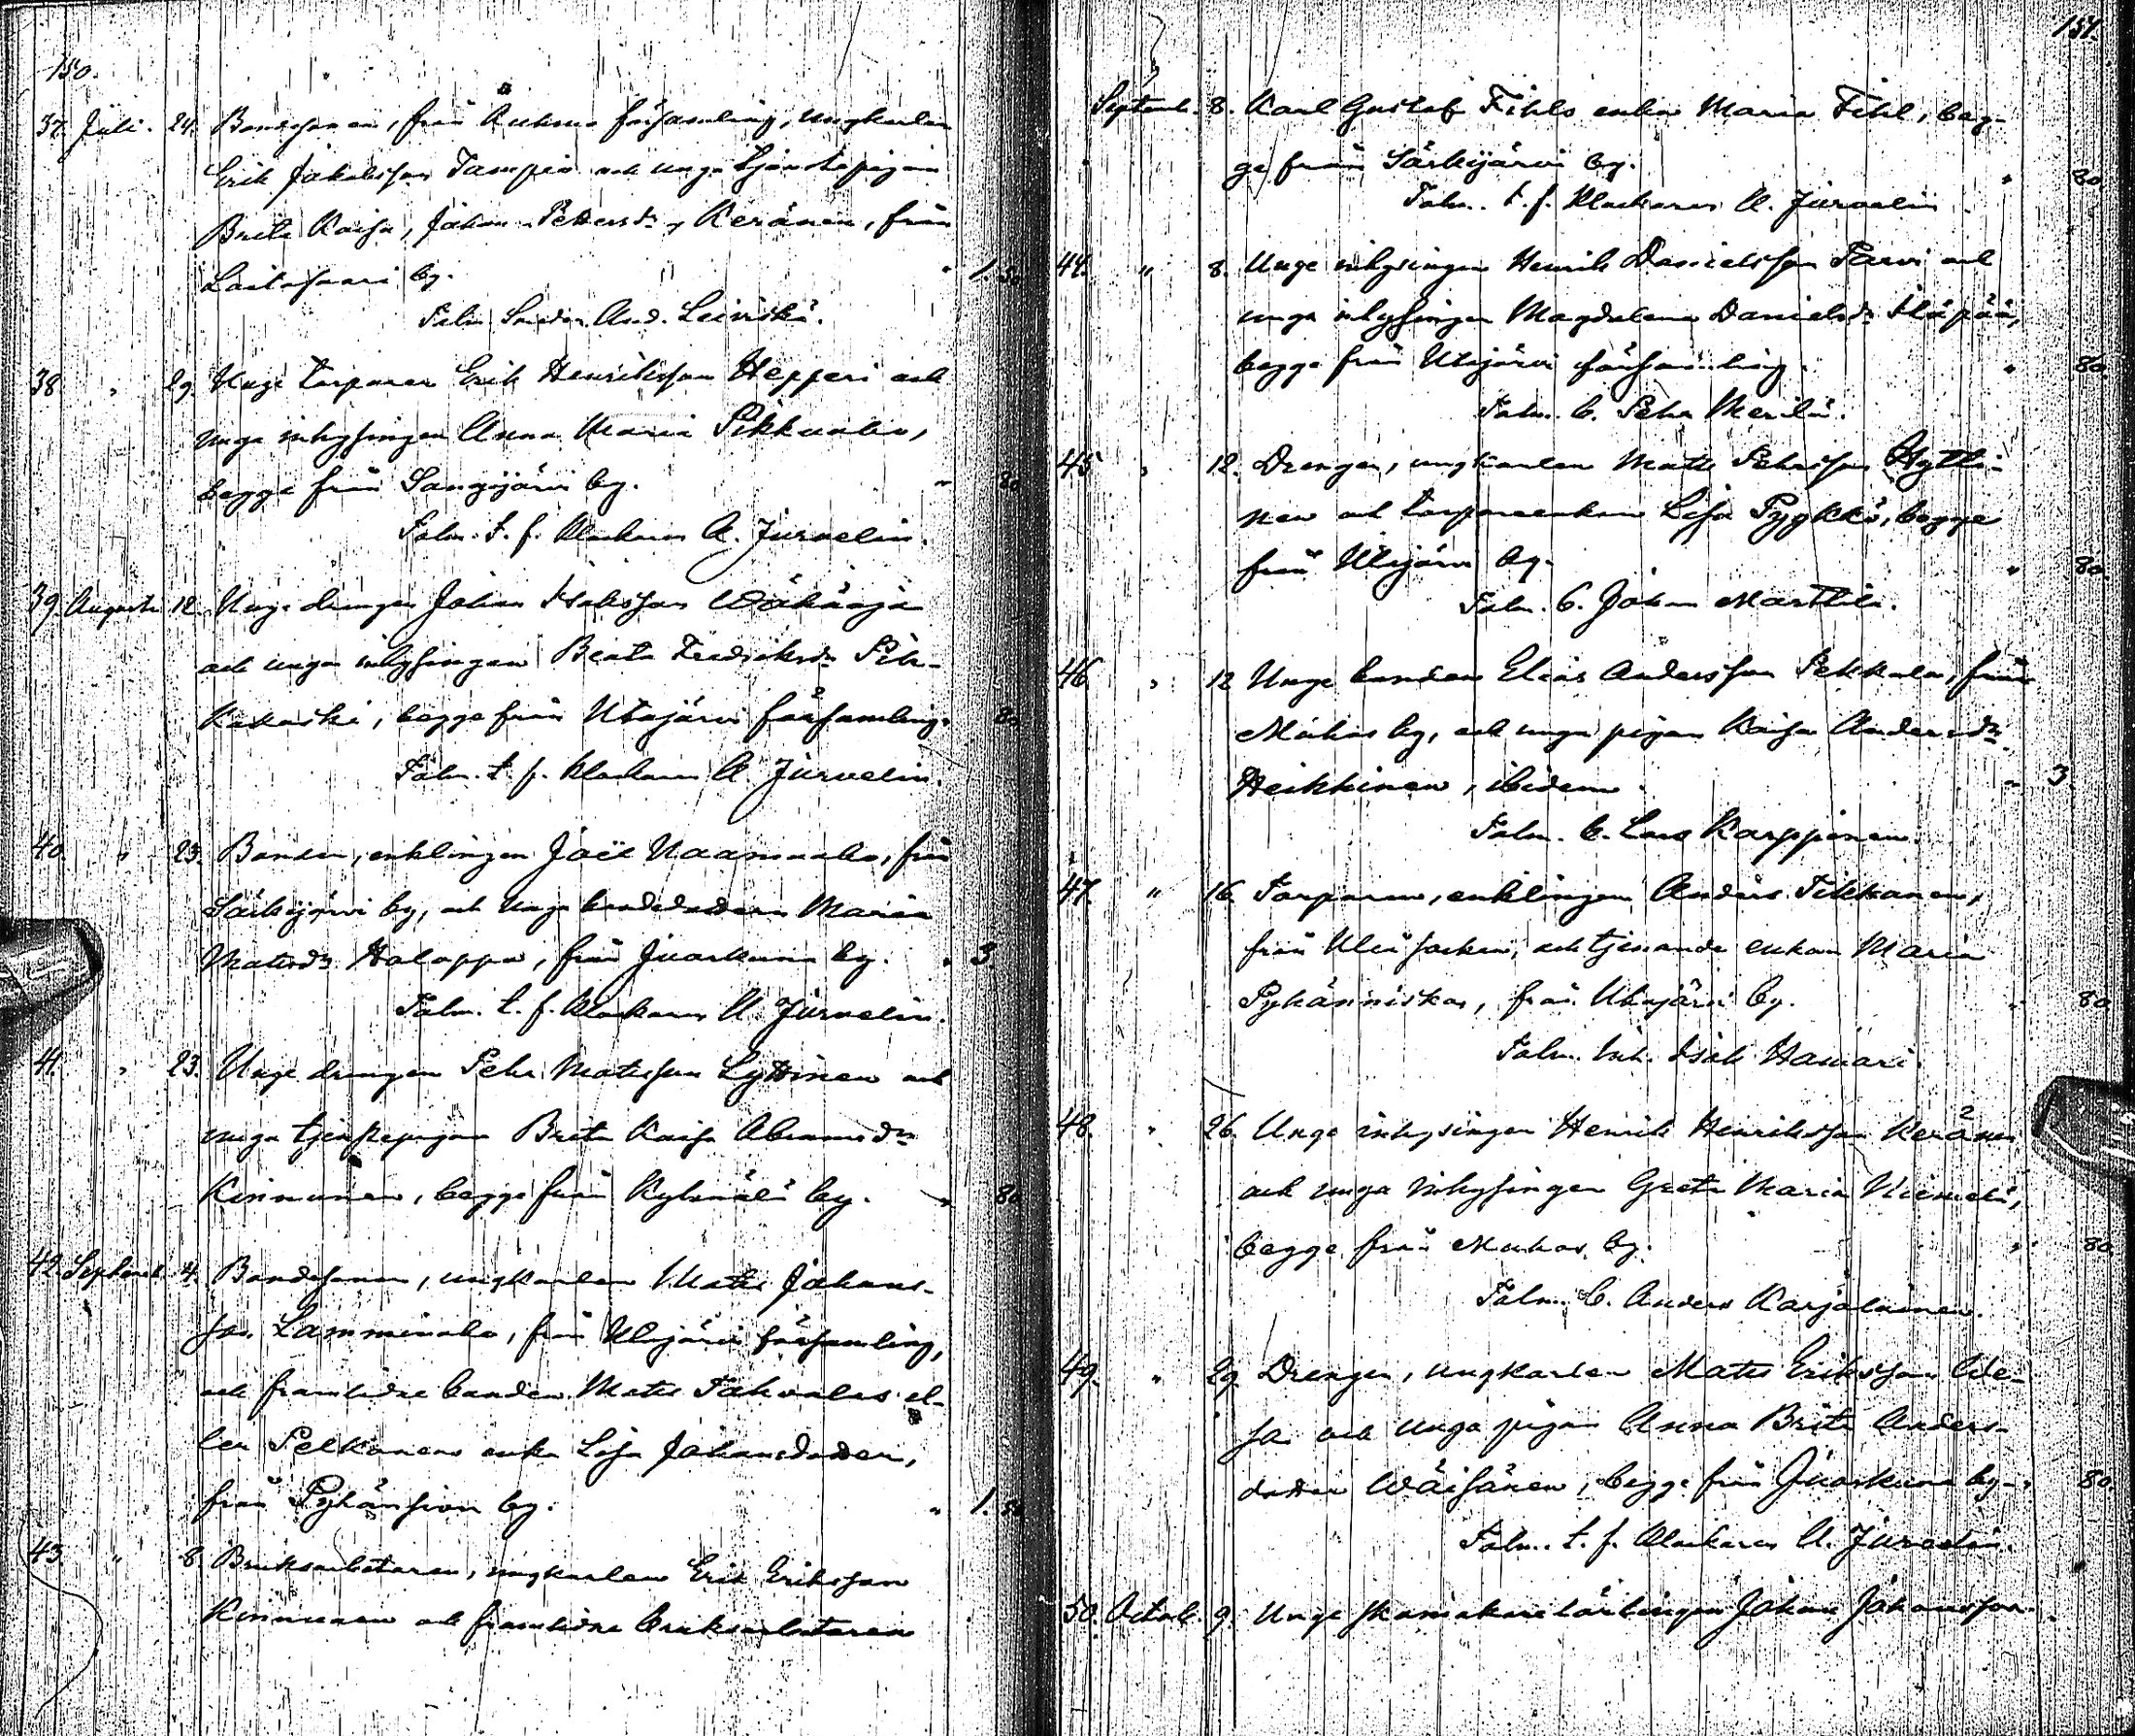 150.
37. Juli. 24. Bondesonen, från Kuhmo församling, ungkarlen
Erik Jakobsson Tampio och unga tjenstepigan
Brita Kaisa, Johan Pettersdr, Keränen, från
Laitasaari by. " 1. 50
Taln. Smeden And. Leiviskä.
38. " 29. Unge torparen Erik Henriksson Hepperi och
unga inhysingen Anna Maria Pikkuaho,
begge från Sangijärvi by. " 80
Taln. t. f. klockaren A. Jurvelin.
39. Augusti 12. Unge drengen Johan Isaksson Wähäoja
och unga inhysingen Beata Fredriksdr Pik-
kukoski, begge från Utajärvi församling. 80
Taln. t. f. klockaren A. Jurvelin.
40. " 23. Bonden, enklingen Joël Naamanka, från
Särkijärvi by, och unga bondedottern Maria
Matsdr Holappa, från Juorkuna by. " 3.
Taln. t. f. klockaren A. Jurvelin.
41. " 23. Unge drengen Pehr Matsson Lyttinen och
unga tjenstepigan Brita Kaisa Abramsdr
Kinnunen, begge från Kylmälä by. " 80
42. Septemb. 4. Bondesonen, ungkarlen Mats Johans-
son Lamminaho, från Utajärvi församling,
och framlidne bonden Mats Tahvolas el-
ler Pelkonens enka Lisa Johansdotter,
från Pyhänsivu by. " 1. 50
43 " 8. Bruksarbetaren, ungkarlen Erik Eriksson
Kinnunen och framlidne bruksarbetaren
151.
Septemb. 8. Karl Gustaf Fihls enka Maria Fihl, beg-
ge från Särkijärvi by. " 80
Taln. t. f. klockaren A. Jurvelin
44. " 8. Unge inhysingen Henrik Danielsson Parvi och
unga inhysingen Magdalena Danielsdr
begge från Utajärvi församling. " 80.
Taln. b. Pehr Merilä.
45 " 12. Drengen, ungkarlen Mats Pehrsson Hytti-
nen och torpareenkan Lisa Pyykkö, begge
från Utajärvi by. " 80.
Taln. b. Johan Marttila.
46. " 12 Unge bonden Elias Andersson Pekkala, från
Muhos by, och unga pigan Kaisa Andersdr
Heikkinen, ibidem. " 3.
Taln. b. Lars Karppinen.
47. " 16. Torparen, enklingen Anders Tikkanen,
från Uleå socken, och tjenande enkan Maria
Pyhänniska, från Utajärvi by. " 80
Taln. Inh. Isak Hamari.
48. " 26. Unge inhysingen Henrik Henriksson Keränen
och unga inhysingen Greta Maria Niemelä,
begge från Muhos by. " 80
Taln. b. Anders Karjalainen.
49. " 29. Drengen, ungkarlen Mats Eriksson We-
sa och unga pigan Anna Brita Anders-
dotter Wäisänen, begge från Juorkuna by. " 80.
Taln. t. f. klockaren A. Jurvelin.
50. Octob. 9. Unge skomakarelärlingen Johan Johansson